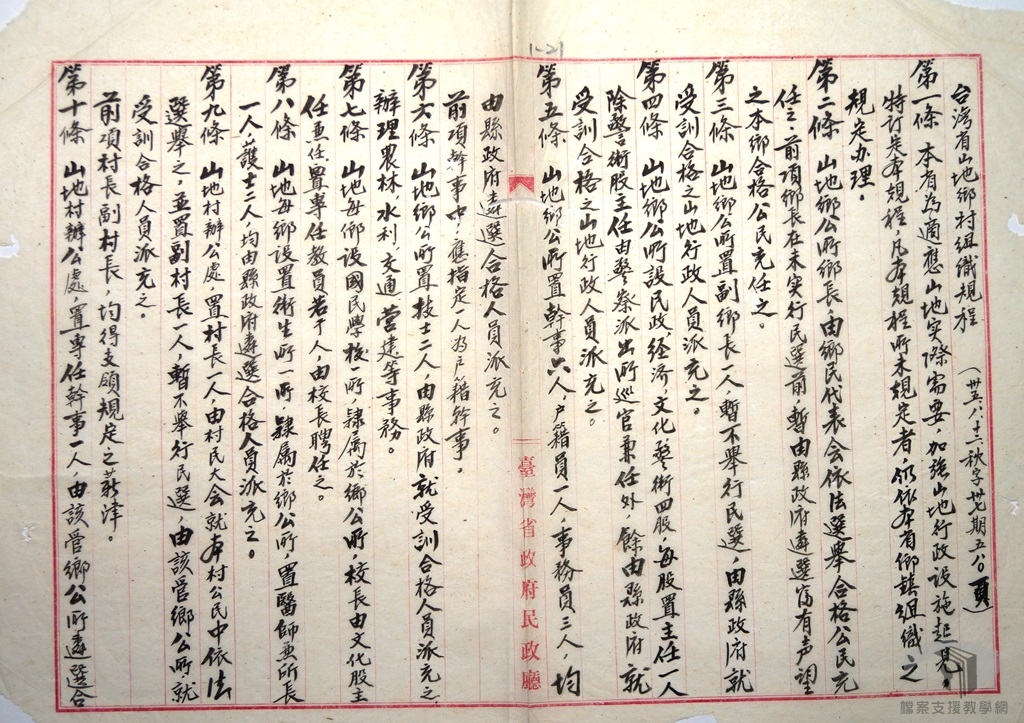 1-21
台湾省山地鄉村組織規程　（卅五、八、十三、秋字卅七期五八〇頁）
第一條　本省為適應山地实際需要，加強山地行政設施起見。
特訂定本規程，凡本規程所未規定者仍依本省鄉鎮組織之
規定办理。
第二條　山地鄉公所鄉長，由鄉民代表会依法選舉合格公民充
任之，前項鄉長在未実行民選前，暫由縣政府遴選富有声望
之本鄉合格公民充任之。
第三條　山地鄉公所置副鄉長一人，暫不舉行民選，由縣政府就
受訓合格之山地行政人員派充之。
第四條　山地鄉公所設民政、経済、文化、警衛四股，每股置主任一人
除警衛股主任由警察派出所巡官兼任外，餘由縣政府就
受訓合格之山地行政人員派充之。
第五條　山地鄉公所置幹事六人，户籍員一人，事務員三人，均
由縣政府遴選合格人員派充之。
前項幹事中，應指定一人为户籍幹事。
第六條　山地鄉公所置技士二人，由縣政府就受訓合格人員派充之，
辦理農林，水利，交通，营建等事務。
第七條　山地每鄉設國民學校一所，隸属於鄉公所，校長由文化股主
任兼任，置專任教員若于人，由校長聘任之。
第八條　山地每鄉設置衛生所一所，隸属於鄉公所，置醫師兼所長
一人，護士二人，均由縣政府遴選合格人員派充之。
第九條　山地村辦公處，置村長一人，由村民大会就本村公民中依法
選舉之，並置副村長一人，暫不舉行民選，由該管鄉公所就
受訓合格人員派充之。
前項村長副村長，均得支領規定之薪津。
第十條　山地村辦公處，置專任幹事一人，由該管鄉公所遴選合
臺灣省政府民政廳
檔案支援教學網